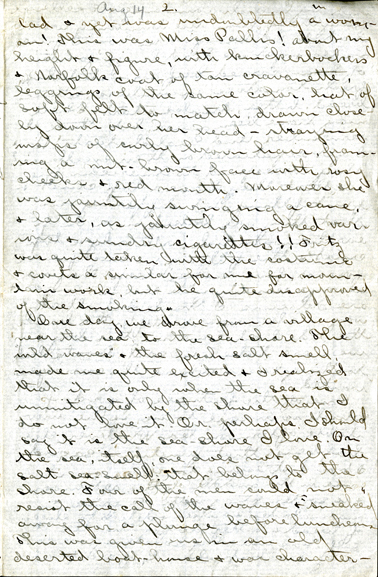 Aug 14 2.
lad & yet was undoubtedly a wom-
an! This was Miss Pallis! about my
height & figure, with knickerbockers
& Norfolk coat of tan cravanette,
leggings of the same color, hat of
soft felt to match, drawn close-
ly down over her head - straying
wisps of curly brown hair, fram-
ing a nut-brown face with rosy
cheeks & red mouth. Moreover she
was jauntily swinging a cane,
& later, as jauntily smoked var-
ious & sundry cigarettes!! Fritz
was quite taken with the costume
& covets a similar for me for moun-
tain work but he quite disapproved
of the smoking.
One day we drove from a village
near the sea to the sea-shore. The
wild waves & the fresh salt smell
made me quite excited & I realized
that it is only when the sea is
unmitigated by the shore that I
do not love it. Or perhaps I should
say it is the sea shore I love. On
the sea, itself, one does not get the
salt sea smells that belong to the
shore. Four of the men could not
resist the call of the waves & sneaked
away for a plunge before luncheon.
This was given us in an old
deserted boat-house & was character-